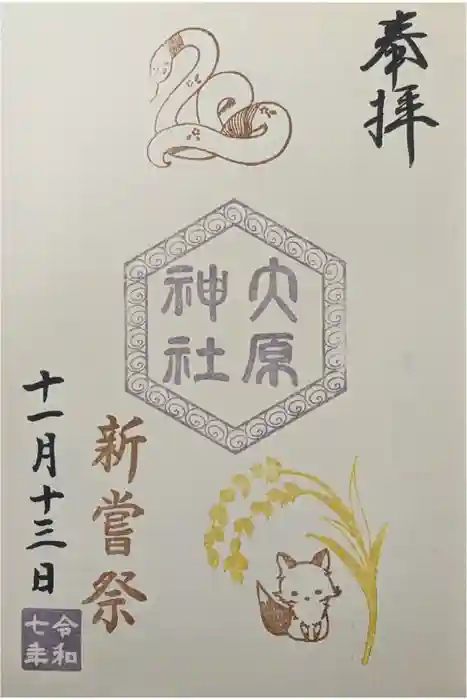 奉拝
大原
神社
新嘗祭
十一月十三日
令和
七年